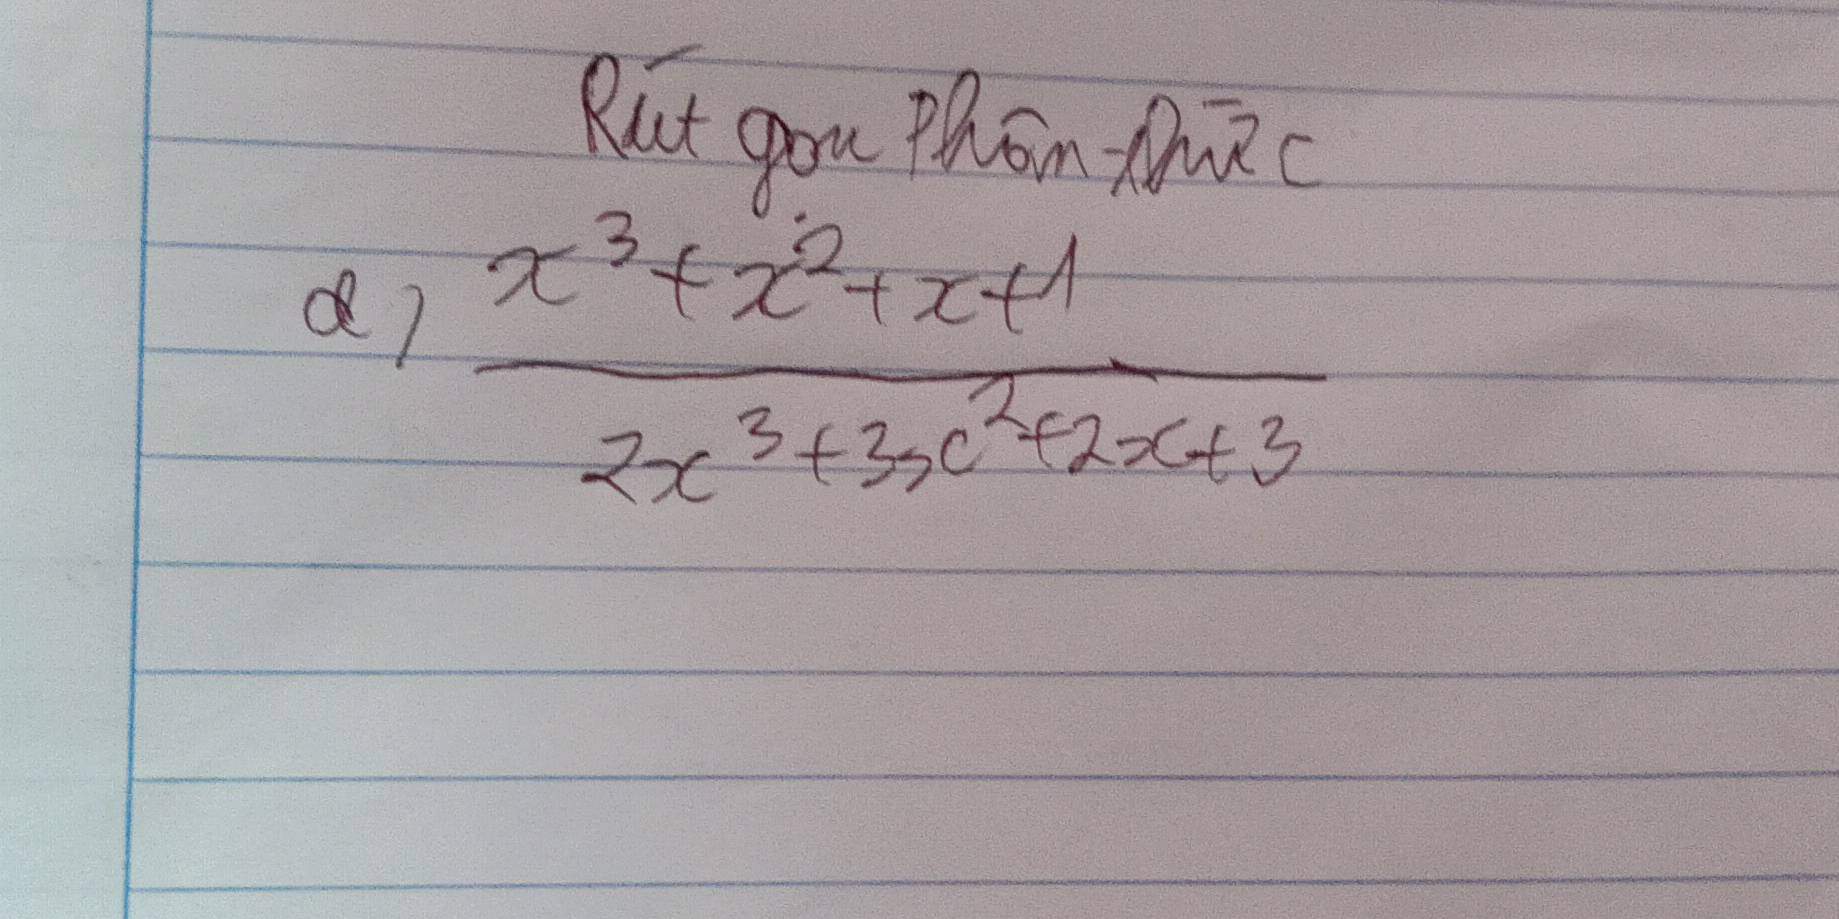 Rút gọn Phân thức
d, x³ + x² + x + 1
2x³ + 3x² + 2x + 3